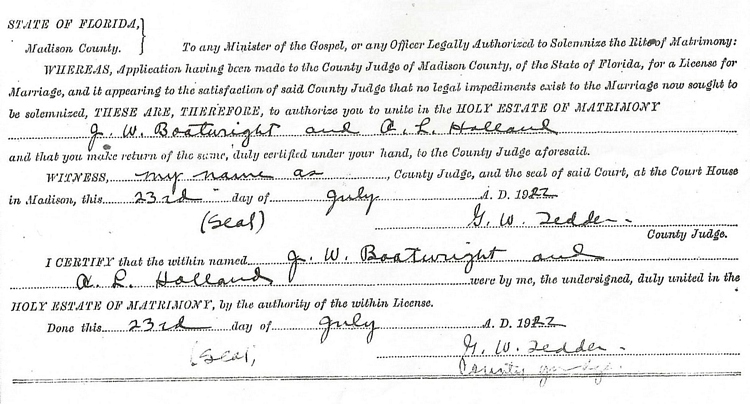 STATE OF FLORIDA,
Madison County.
To any Minister of the Gospel, or any Officer Legally Authorized to Solemnize the Rite of Matrimony:
WHEREAS, Application having been made to the County Judge of Madison County, of the State of Florida, for a License for
Marriage, and it appearing to the satisfaction of said County Judge that no legal impediments exist to the Marriage now sought to
be solemnized, THESE ARE, THEREFORE, to authorize you to unite in the HOLY ESTATE OF MATRIMONY
J. W. Boatwright and A. L. Holland
and that you make return of the same, duly certified under your hand, to the County Judge aforesaid.
WITNESS, my name as, County Judge, and the seal of said Court, at the Court House
in Madison, this 23rd day of July A. D. 1922
(Seal) G. W. Tedder
County Judge.
I CERTIFY that the within named J. W. Boatwright and
A. L. Holland were by me, the undersigned, duly united in the
HOLY ESTATE OF MATRIMONY, by the authority of the within License.
Done this 23rd day of July A. D. 1922
(Seal) G. W. Tedder
County Judge.